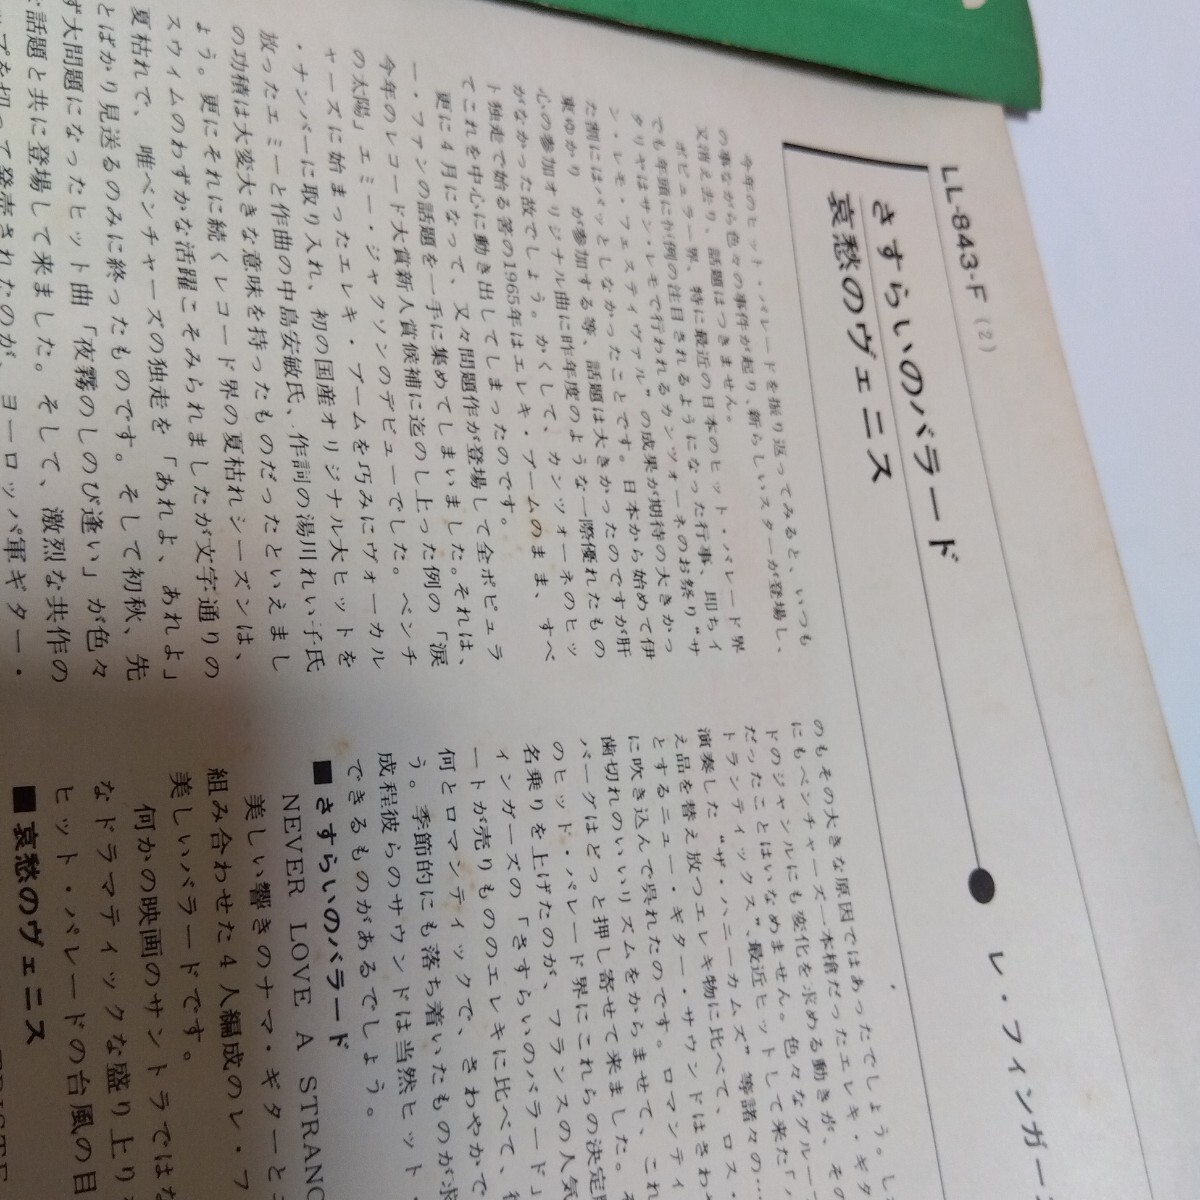 LL-843-F (2)
さすらいのバラード
哀愁のヴェニス
レ・フィンガー
今年のヒット・パレードを振り返ってみると、いつも
の事ながら色々の事件が起り、新らしいスターが登場し、
又消え去り、話題はつきません。
ポピュラー界、特に最近の日本のヒット・パレード界
でも年頭に恒例の注目されるようになった行事、即ちイ
タリヤはサン・レモで行われるカンツォーネのお祭り“サ
ン・レモ・フェスティヴァル”の成果が期待の大きかっ
た割にはパッとしなかったことです。日本から始めて伊
東ゆかり が参加する等、話題は大きかったのですが肝
心の参加オリジナル曲に昨年度のような一際優れたもの
がなかった故でしょう。かくして、カンツォーネのヒッ
ト独走で始る筈の1965年はエレキ・ブームのまま、すべ
てこれを中心に動き出してしまったのです。
更に4月になって、又々問題作が登場して全ポピュラ
ー・ファンの話題を一手に集めてしまいました。それは、
今年のレコード大賞新人賞候補に迄のし上った例の「涙
の太陽」エミー・ジャクソンのデビューでした。ベンチ
ャーズに始まったエレキ・ブームを巧みにヴォーカル
・ナンバーに取り入れ、初の国産オリジナル大ヒットを
放ったエミーと作曲の中島安敏氏、作詞の湯川れい子氏
の功積は大変大きな意味を持ったものだったといえまし
ょう。更にそれに続くレコード界の夏枯れシーズンは、
スウィムのわずかな活躍こそみられましたが文字通りの
夏枯れで、唯ベンチャーズの独走を「あれよ、あれよ」
とばかり見送るのみに終ったものです。そして初秋、先
ず大問題になったヒット曲「夜霧のしのび逢い」が色々
話題と共に登場して来ました。そして、激烈な共作の
を切って発売されたのが、ヨーロッパ軍ギター・
のもその大きな原因ではあったでしょう。し
にもベンチャーズ一本槍だったエレキ・ギタ
ドのジャンルにも変化を求める動きが、その
だったことはいなめません。色々なグループ
トランティックス”、最近ヒットして来た「
演奏した“ザ・ハニーカムズ”等諸々の…
え品を替え放つエレキ物に比べて、ロス・
とするニュー・ギター・サウンドはさわ
に吹き込んで呉れたのです。ロマンティ
歯切れのいいリズムをからませて、これ
バーゲはどっと押し寄せて来ました。そ
のヒット・パレード界にこれらの決定
名乗りを上げたのが、フランスの人気
ィンガーズの「さすらいのバラード」
ートが売りもののエレキに比べて、
何とロマンティックで、さわやかで
う。季節的にも落ち着いたものが求
成程彼らのサウンドは当然ヒット・
できるものがあるでしょう。
■さすらいのバラード
NEVER LOVE A STRANG
美しい響きのナマ・ギターと
組み合わせた4人編成のレ・フ
美しいバラードです。
何かの映画のサントラではな
なドラマティックな盛り上り
ヒット・パレードの台風の目
■哀愁のヴェニス